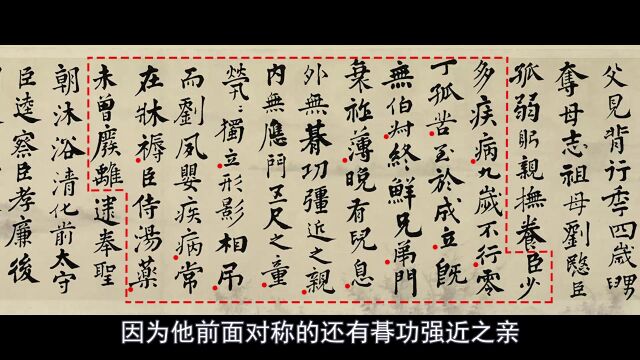 父見背行秊四歲舅
奪母志祖母劉愍臣
孤弱躬親撫養臣少
多疾病九歲不行零
丁孤苦至於成立既
無伯叔終鮮兄弟門
衰祚薄晚有兒息
外無朞功彊近之親
内無應門五尺之童
煢〻獨立形影相吊
而劉夙嬰疾病常
在牀褥臣侍湯藥
未曾廢離逮奉聖
朝沐浴清化前太守
臣逵察臣孝廉後
因为他前面对称的还有朞功强近之亲